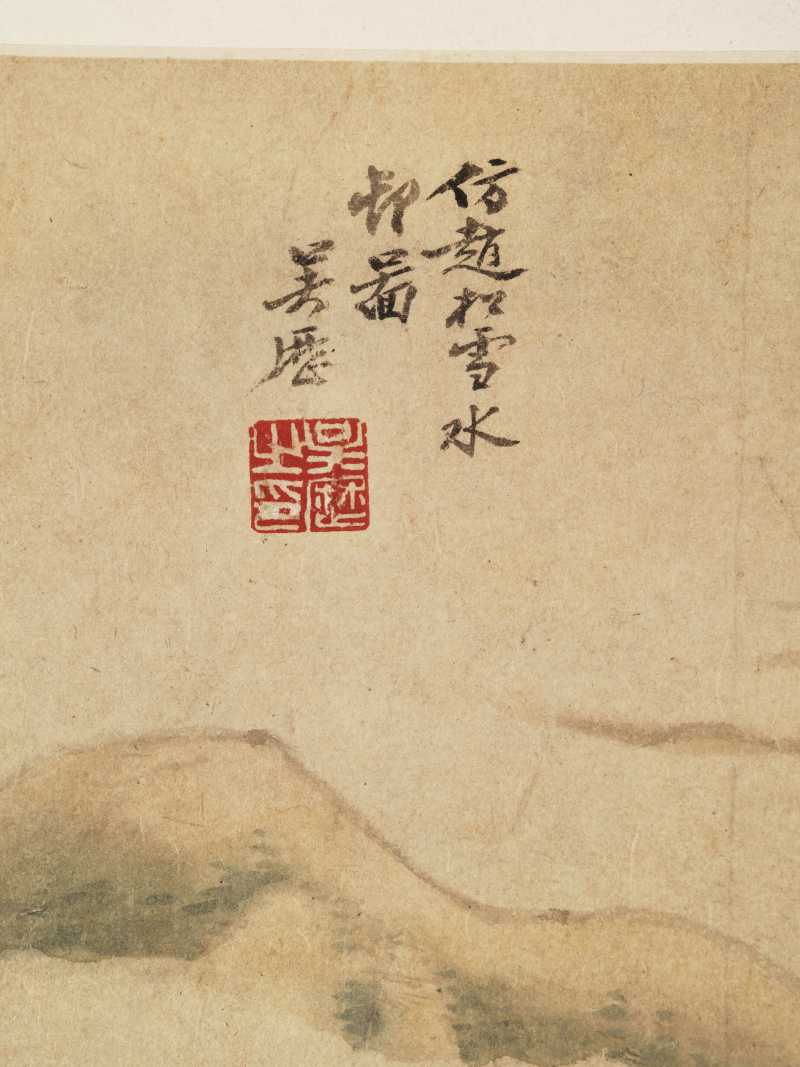 仿趙松雪水
邨啚
吴歷
吴歷之印